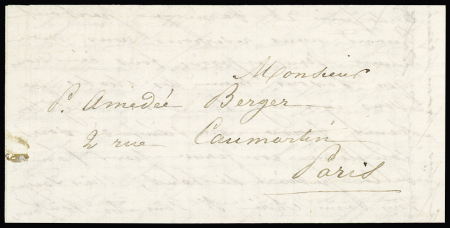 Monsieur
P. Amedée Berger
2 rue Caumartin
Paris